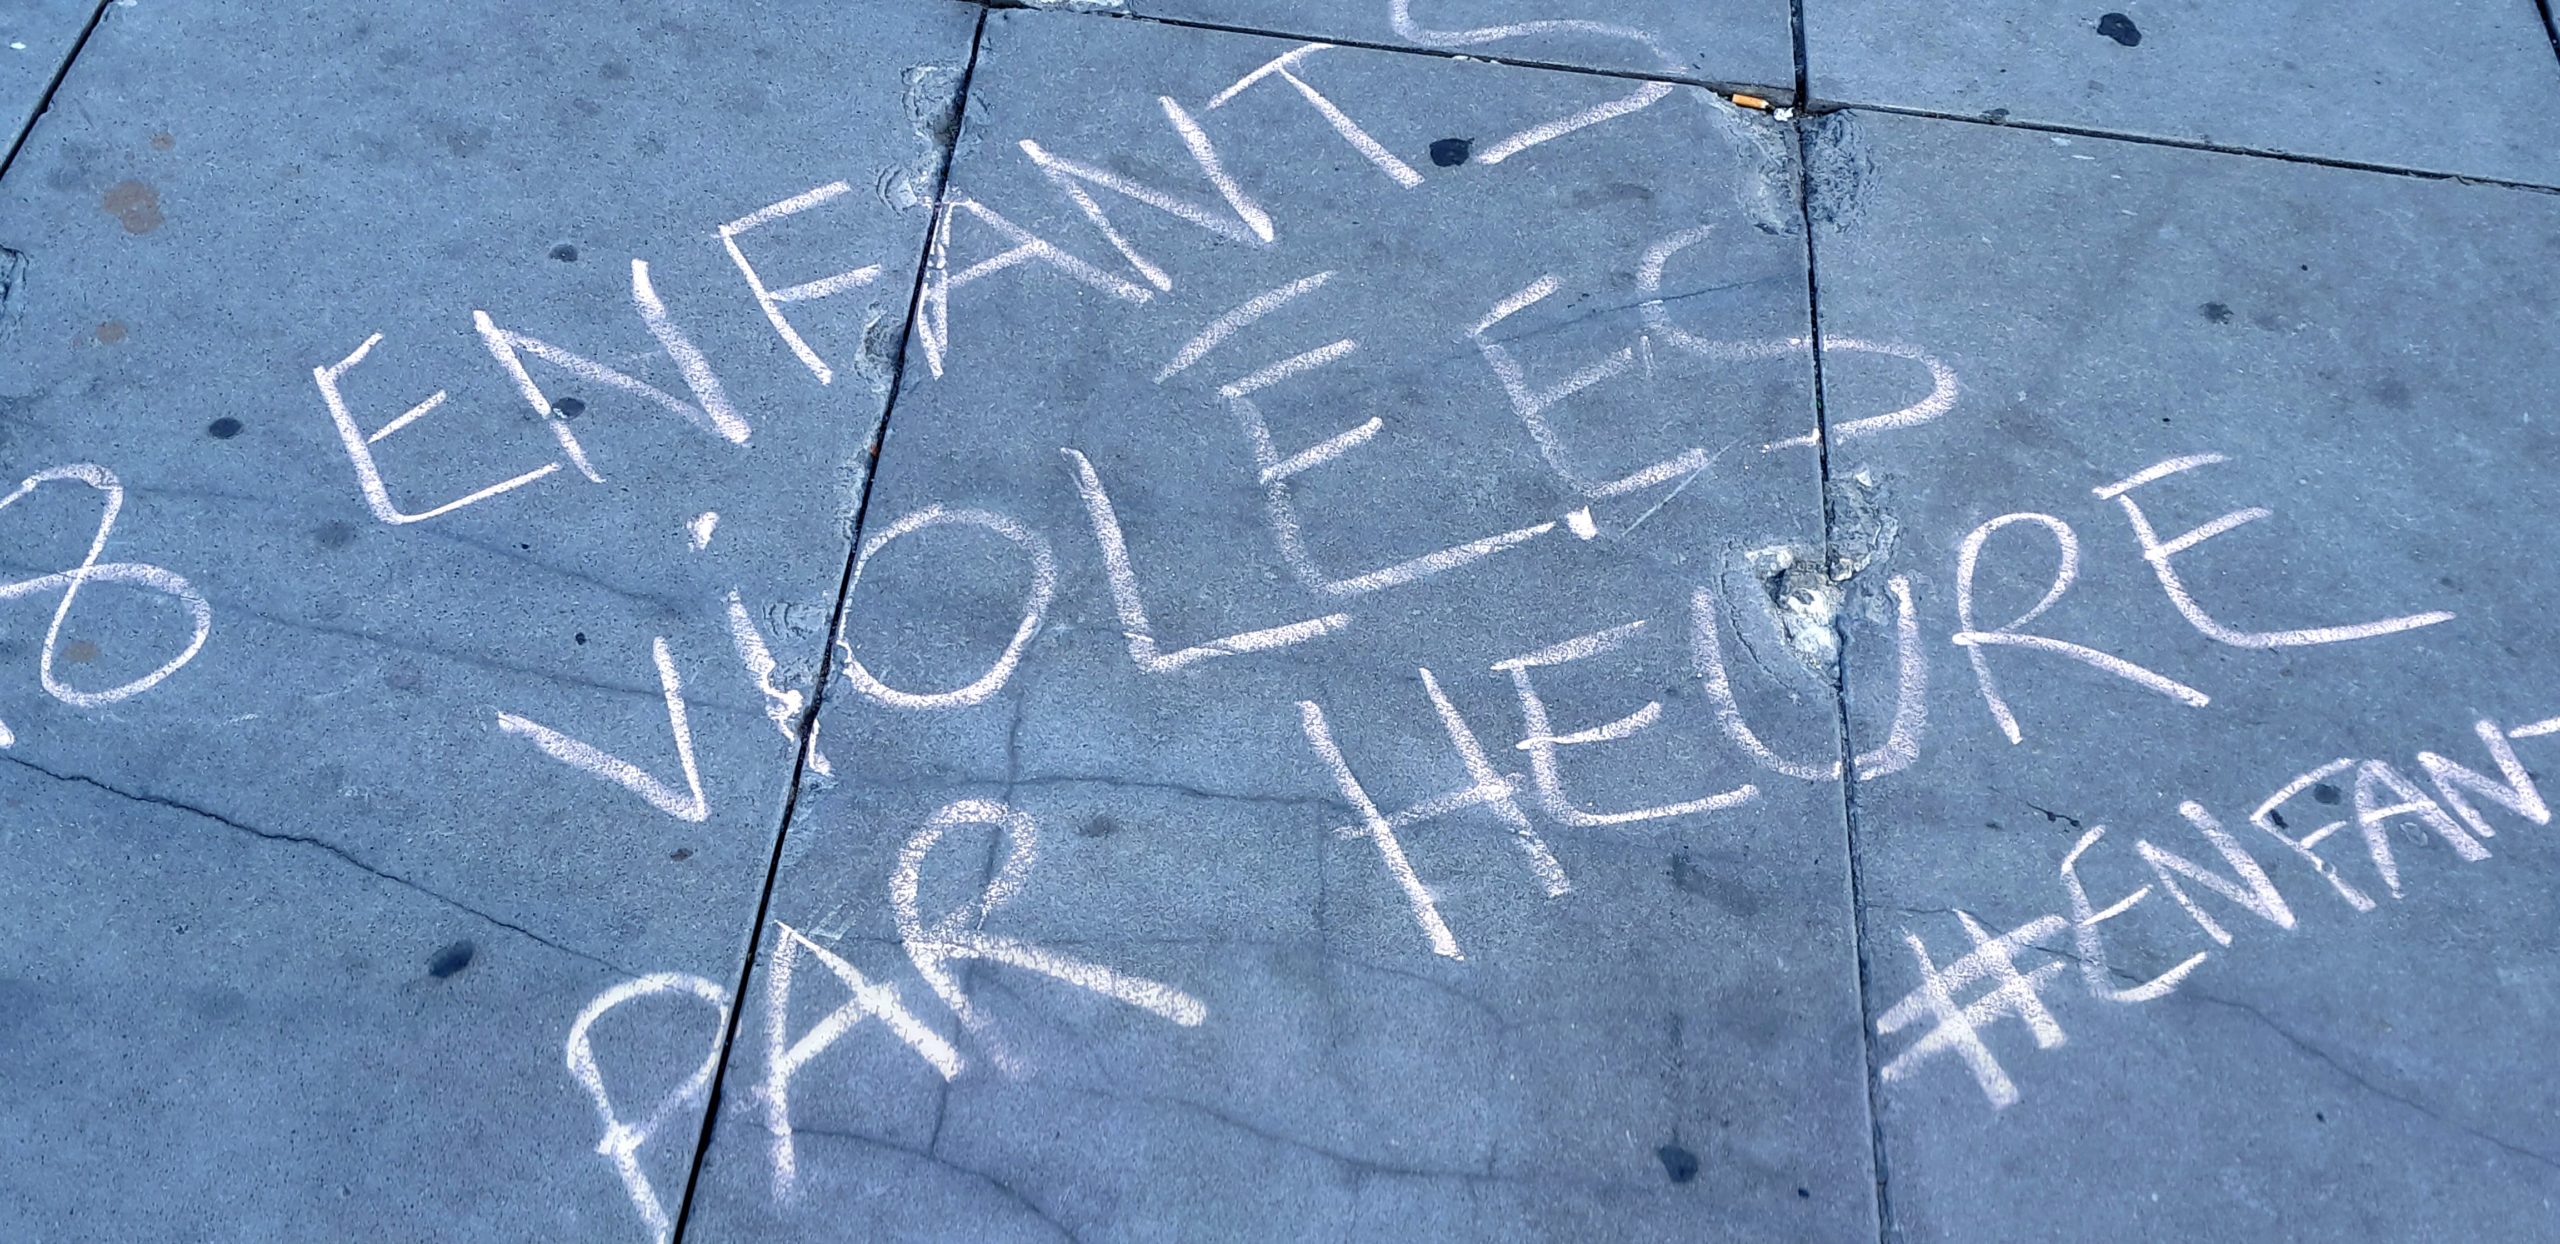 8 ENFANTS
VIOLÉ.ES
PAR HEURE
#ENFANT